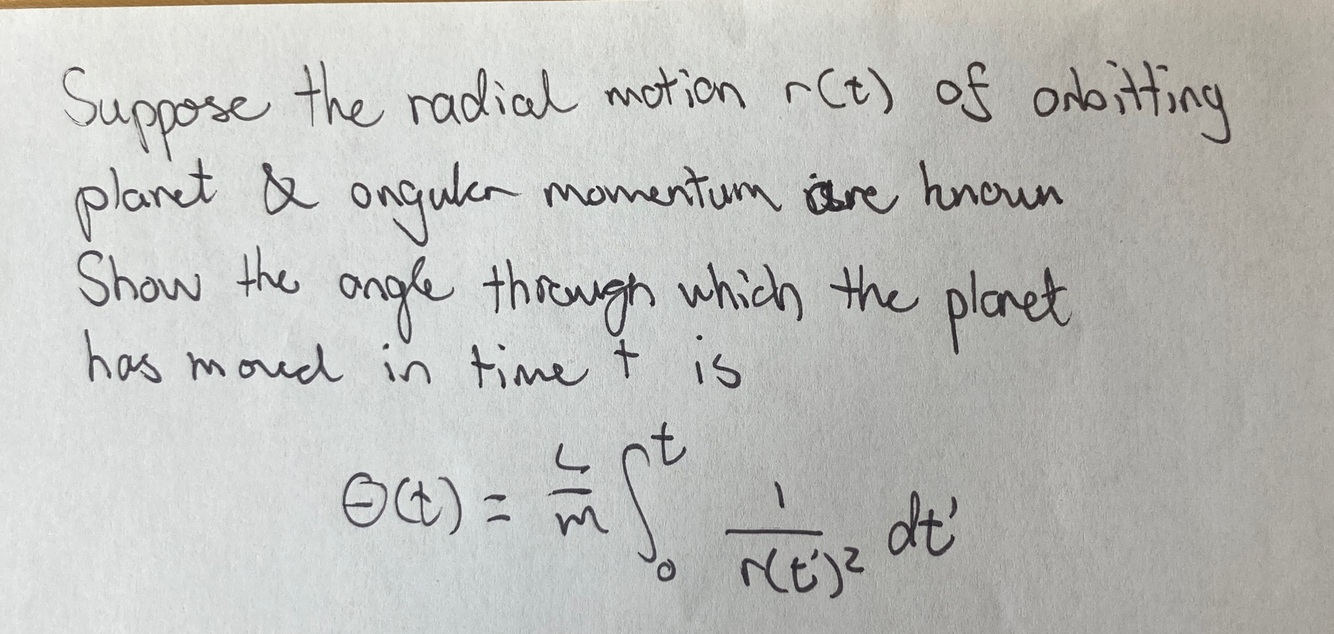 Suppose the radial motion r(t) of orbitting
planet & angular momentum are known
Show the angle through which the planet
has moved in time t is
Θ(t) = L/m ∫₀ᵗ 1/r(t')² dt'